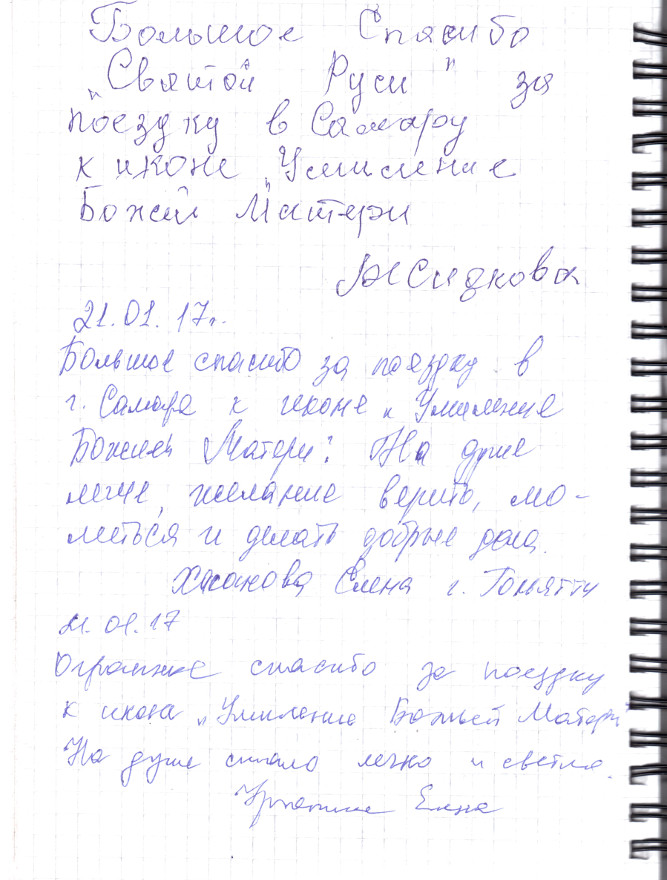 Большое Спасибо
„Святой Руси" за
поездку в Самару
к иконе „Умиление
Божей Матери
Сидкова
21.01.17г.
Большое спасибо за поездку в
г. Самара к иконе „Умиление
Божией Матери". На душе
легче, желание верить, мо-
литься и делать добрые дела.
Хасанова Елена г. Тольятти
21.01.17
Огромное спасибо за поездку
к иконе „Умиление Божьей Матери"
На душе стало легко и светло.
Елена